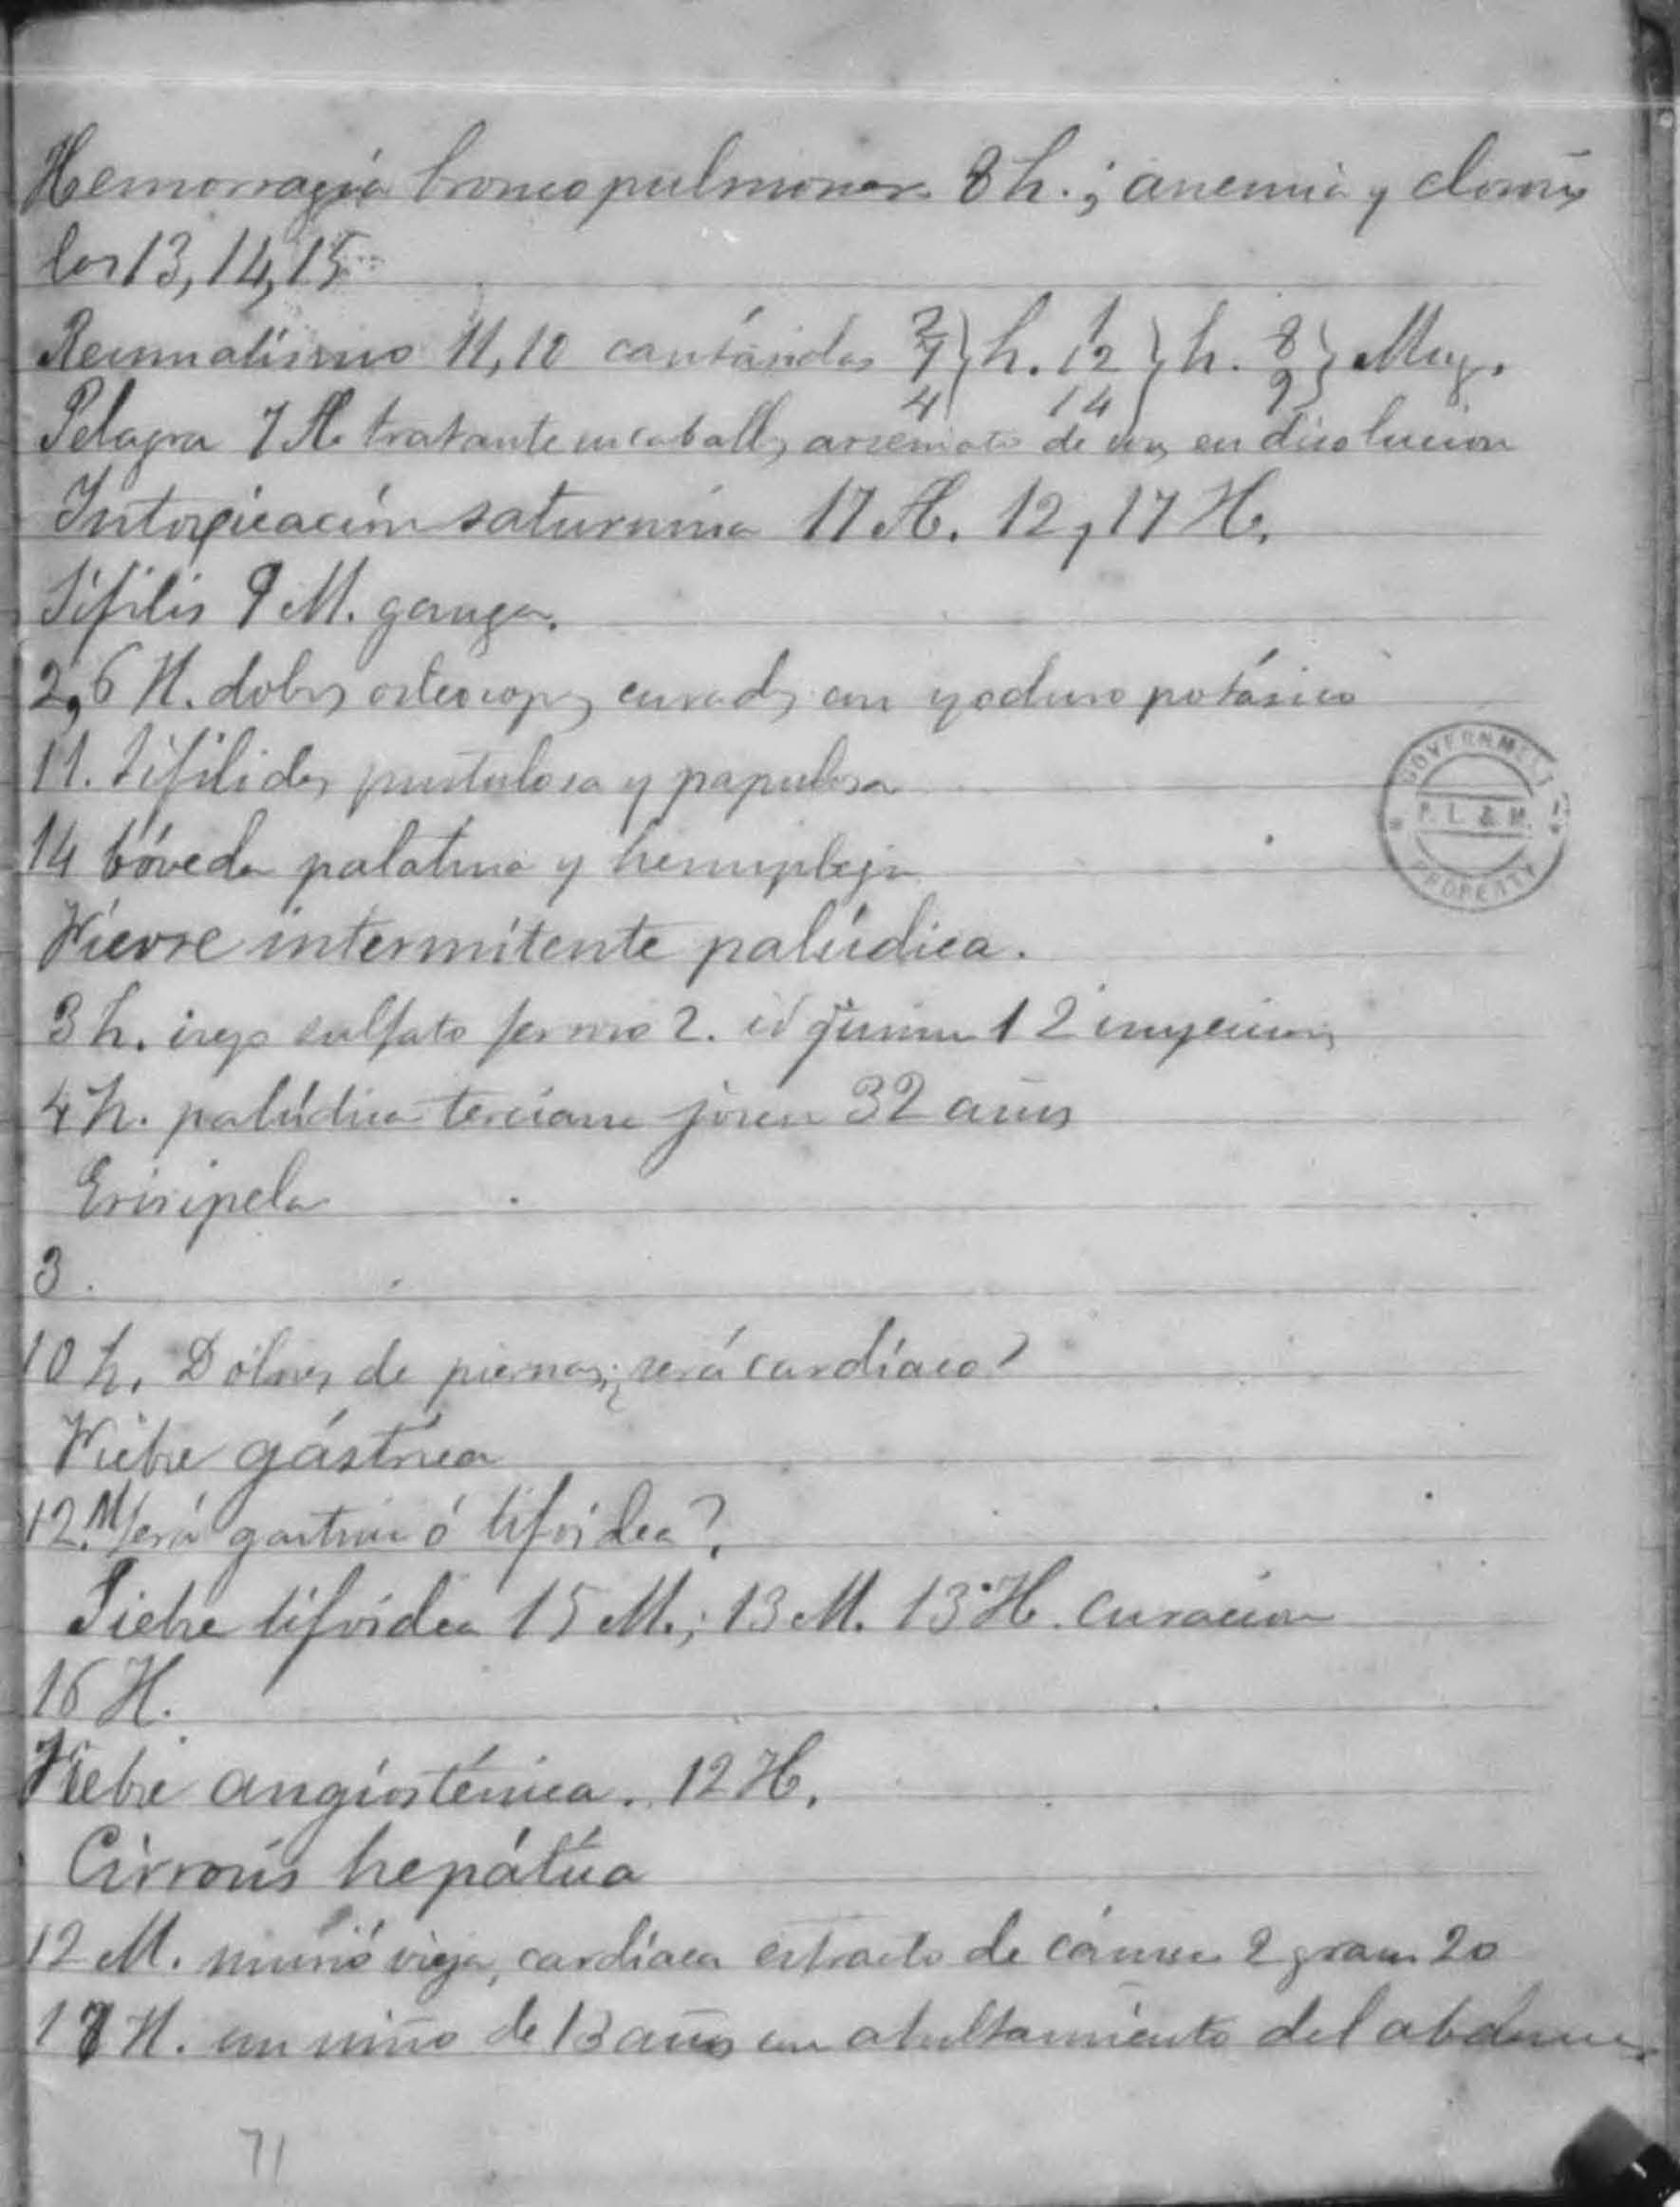 Hemorragia broncopulmonar 8 h.; anemia y clorosis
los 13, 14, 15
Reumatismo 11, 10 cantáridas 2 7 4 } h. 1 12 14 } h. 8 9 } Muj.
Pelagra 7 H. tratante en caballos, arseniato de en disolucion
Intoxicacion saturnina 17 H. 12, 17 H.
Sífilis 9 M. ganga.
2, 6 H. dolores osteocopos curados con yoduro potásico
11. Sifilides pustulosa y papulosa
14 bóveda palatina y hemiplejia
Fievre intermitente palúdica.
3 h. sulfato ferroso 2. id 12
4 h. palúdica terciana joven 32 años
Erisipela
3.
10 h. Dolores de piernas; ¿será cardíaco?
Fiebre gástrica
12. M Será gastrica ó tifoidea?
Fiebre tifoidea 15 M.; 13 M. 13 H. curacion
16 H.
Fiebre angiosténica. 12 H.
Cirrosis hepática
12 M. murió vieja, cardíaca estracto de 2 gram. 20
17 H. un niño de 13 años con abultamiento del abdomen
71
GOVERNMENT
P. L. & M.
PROPERTY